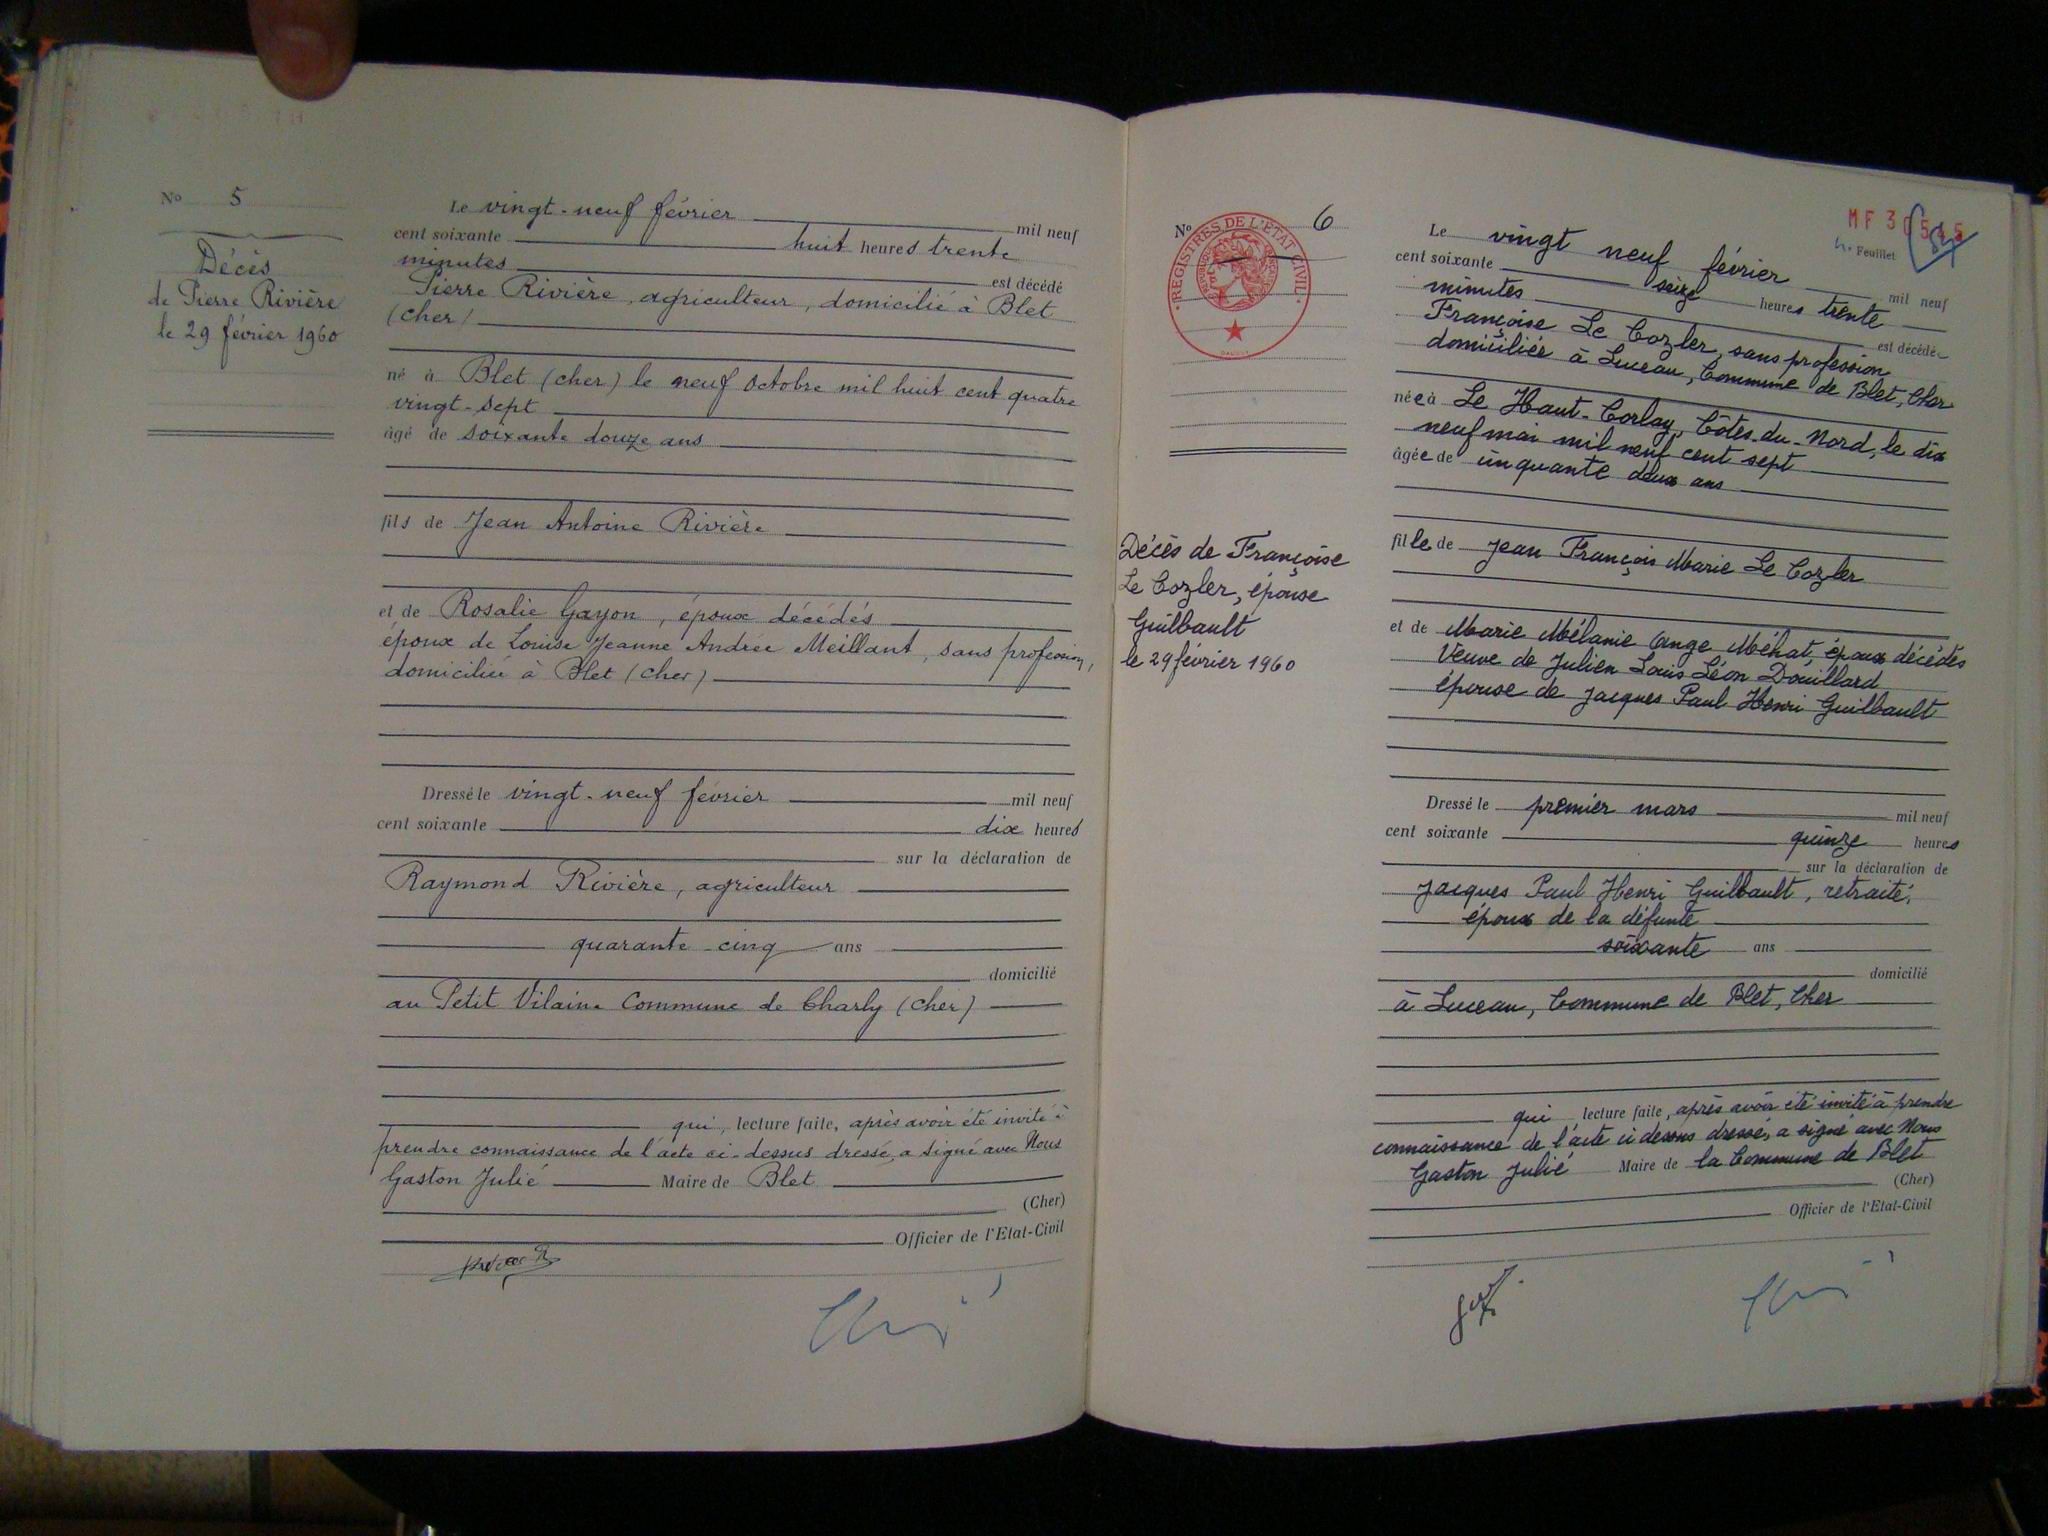 N° 5
Décès
de Pierre Rivière
le 29 février 1960
Le vingt-neuf février mil neuf
cent soixante huit heures trente
minutes est décédé
Pierre Rivière, agriculteur, domicilié à Blet
(cher)
né à Blet (cher) le neuf octobre mil huit cent quatre
vingt-sept
âgé de soixante douze ans
fils de Jean Antoine Rivière
et de Rosalie Gayon, époux décédés
époux de Louise Jeanne Andrée Meillant, sans profession,
domiciliée à Blet (cher)
Dressé le vingt-neuf février mil neuf
cent soixante dix heures
sur la déclaration de
Raymond Rivière, agriculteur
quarante cinq ans
domicilié
au Petit Vilaine Commune de Charly (cher)
qui, lecture faite, après avoir été invité à
prendre connaissance de l'acte ci-dessus dressé, a signé avec Nous
Gaston Julié Maire de Blet
(Cher)
Officier de l'Etat-Civil
N° 6
REGISTRES DE L'ETAT CIVIL
Décès de Françoise
Le Cozler, épouse
Guilbault
le 29 février 1960
MF 30545
Feuillet
Le vingt neuf février mil neuf
cent soixante seize heures trente
minutes est décédée
Françoise Le Cozler, sans profession
domiciliée à Luceau, Commune de Blet, Cher
née à Le Haut-Corlay, Côtes-du-Nord, le dix
neuf mai mil neuf cent sept
âgée de cinquante deux ans
fille de Jean François Marie Le Cozler
et de Marie Mélanie Ange Méhat, époux décédés
Veuve de Julien Louis Léon Douillard
épouse de Jacques Paul Henri Guilbault
Dressé le premier mars mil neuf
cent soixante quinze heures
sur la déclaration de
Jacques Paul Henri Guilbault, retraité,
époux de la défunte
soixante ans
domicilié
à Luceau, Commune de Blet, Cher
qui lecture faite, après avoir été invité à prendre
connaissance de l'acte ci dessus dressé, a signé avec Nous
Gaston Julié Maire de la Commune de Blet
(Cher)
Officier de l'Etat-Civil